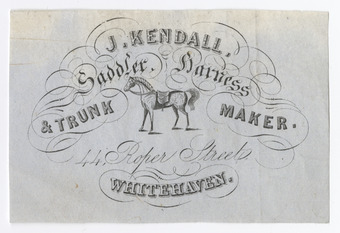 J. KENDALL.
Saddler, Harness
& TRUNK MAKER.
44, Roper Street,
WHITEHAVEN.